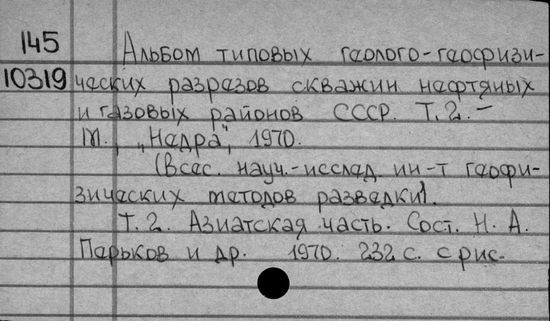 145
10319
Альбом типовых геолого-геофизи-
ческих разрезов скважин нефтяных
и газовых районов СССР. Т.2.-
М., „Недра", 1970.
(Всес. науч.-исслед. ин-т геофи-
зических методов разведки).
Т.2. Азиатская часть. Сост. Н.А.
Парьков и др. 1970. 232 с. с рис.